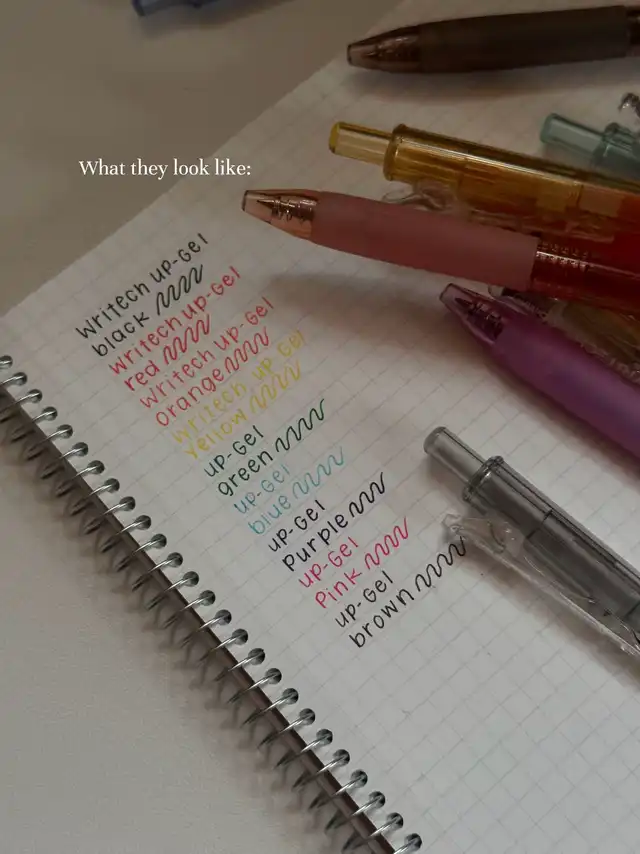 What they look like:
Writech up-Gel
black
Writech up-Gel
red
Writech up-Gel
orange
Writech up-Gel
yellow
up-Gel
green
up-Gel
blue
up-Gel
Purple
up-Gel
Pink
up-Gel
brown